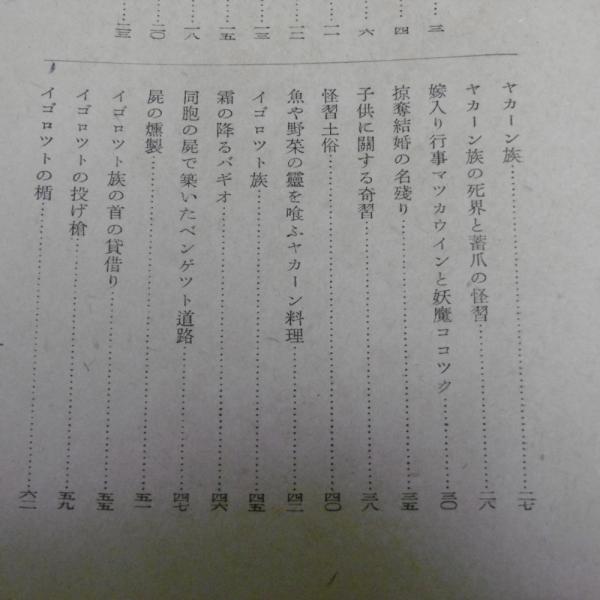 三
四
六
一一
一二
一三
一五
一八
二〇
二三
ヤカーン族……二七
ヤカーン族の死界と蓄爪の怪習……二八
嫁入り行事マツカウインと妖魔ココツク……三〇
掠奪結婚の名残り……三五
子供に關する奇習……三八
怪習土俗……四〇
魚や野菜の靈を喰ふヤカーン料理……四二
イゴロツト族……四五
霜の降るバギオ……四六
同胞の屍で築いたベンゲツト道路……四七
屍の燻製……五一
イゴロツト族の首の貸借り……五五
イゴロツトの投げ槍……五九
イゴロツトの楯……六一